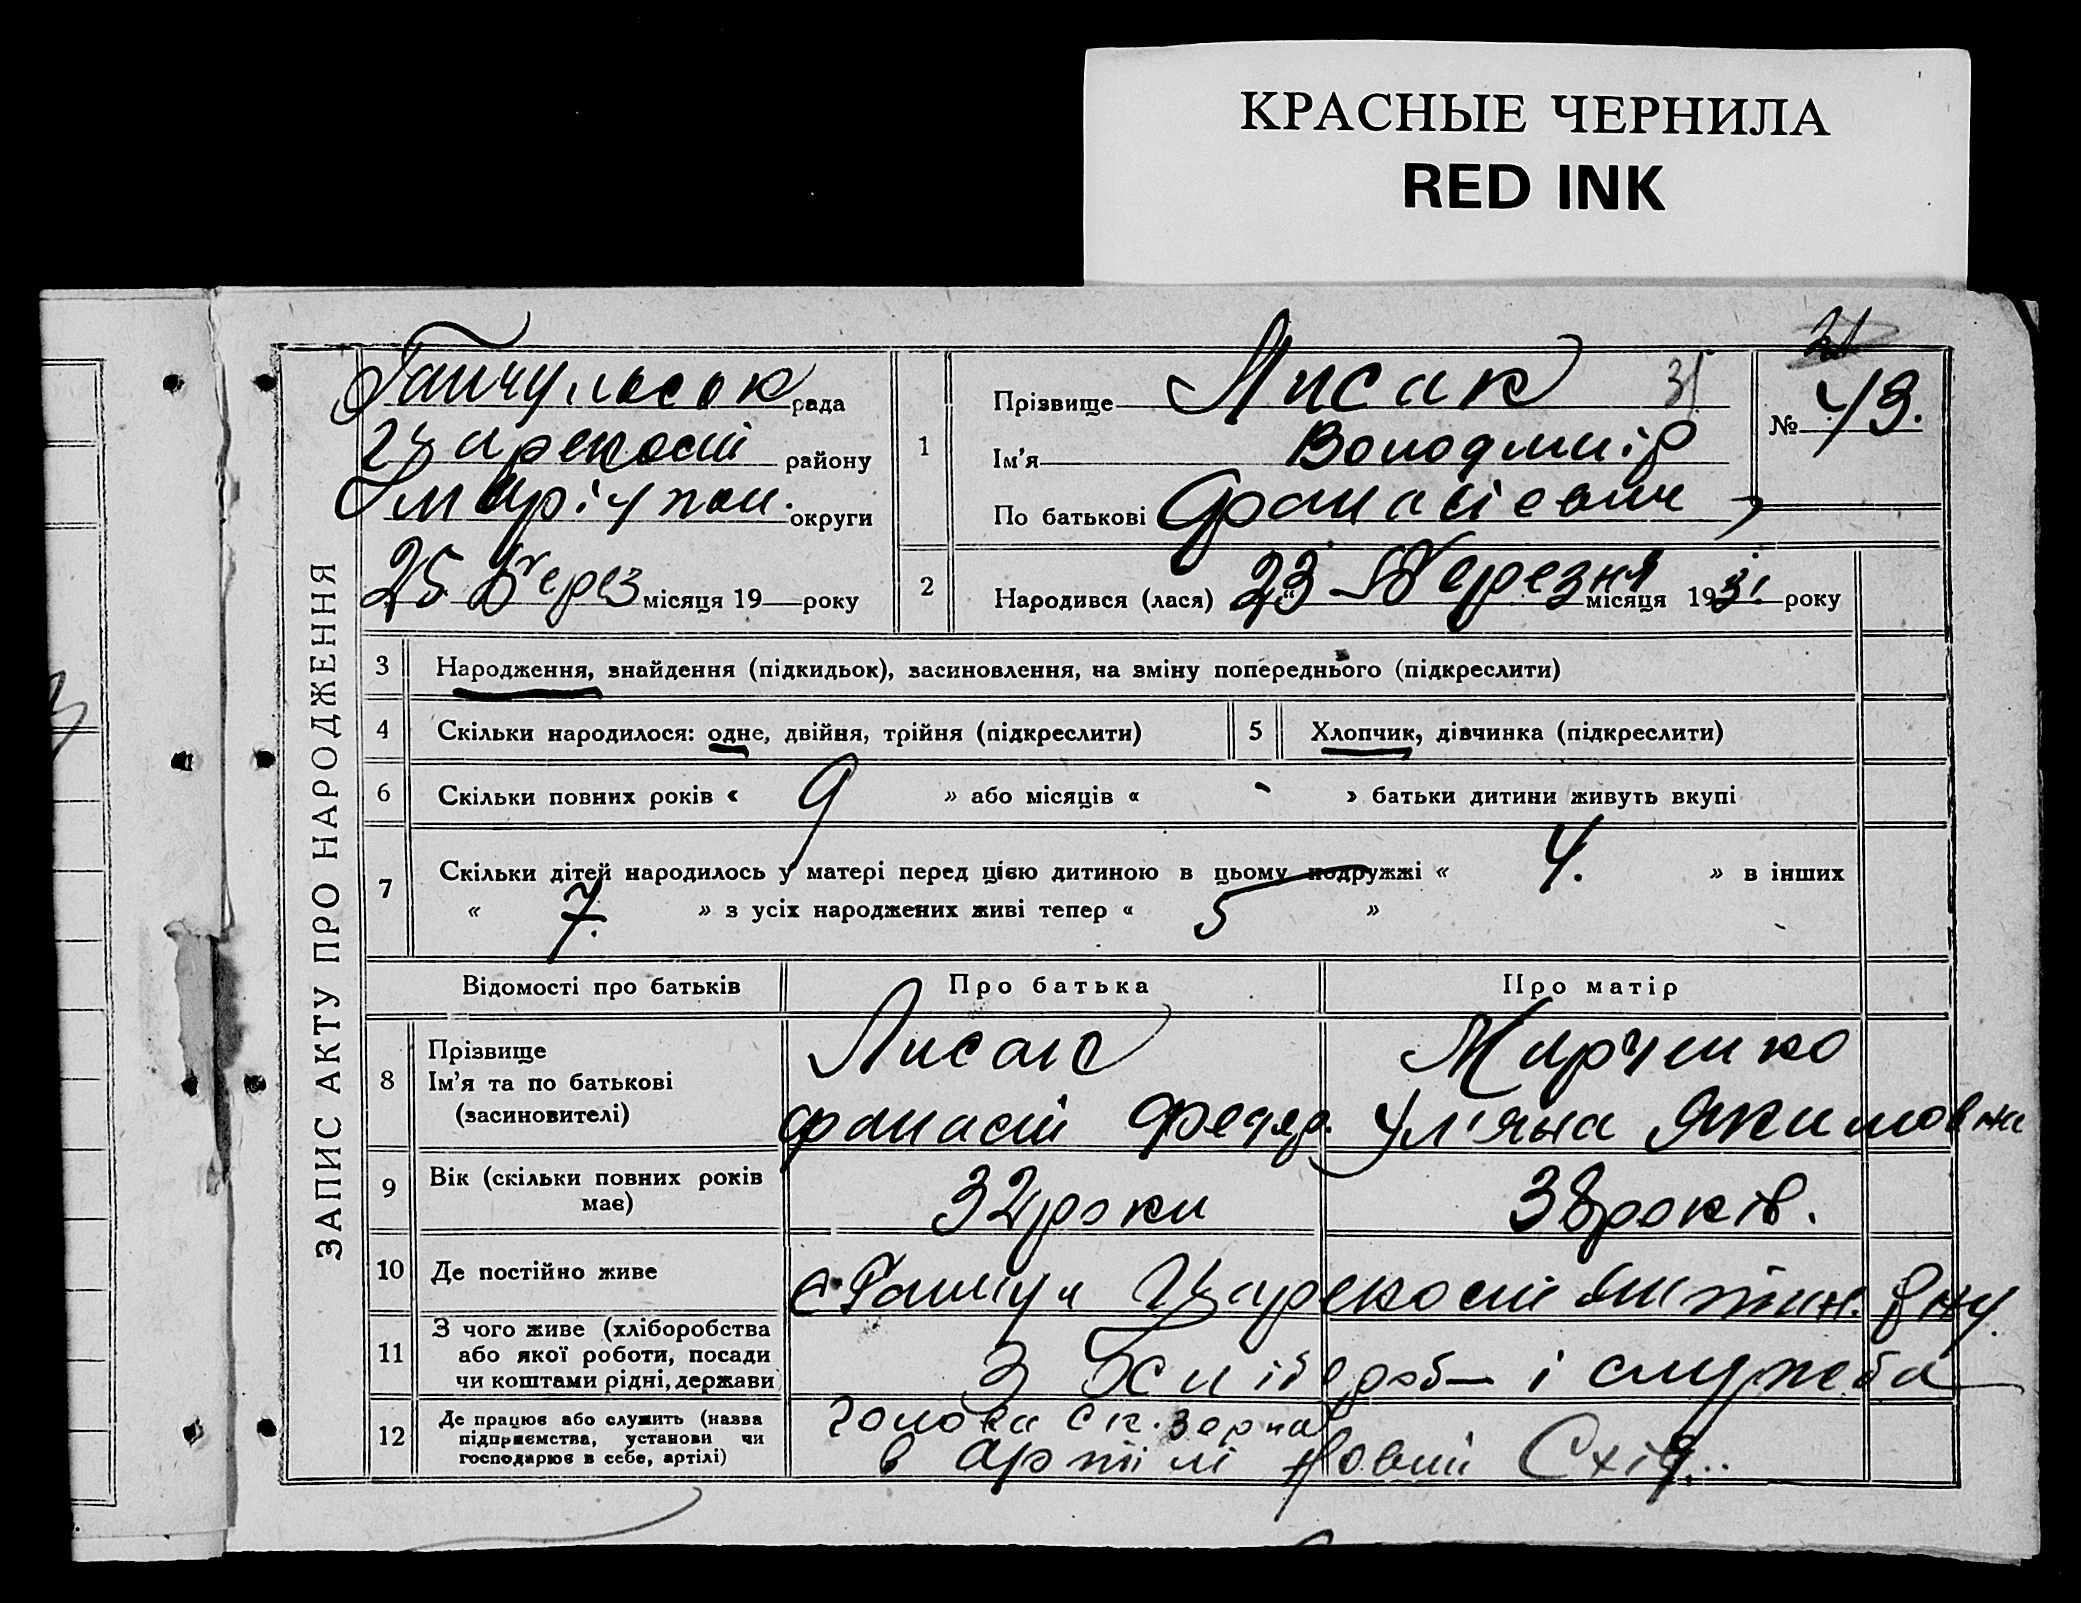 КРАСНЫЕ ЧЕРНИЛА
RED INK
ЗАПИС АКТУ ПРО НАРОДЖЕННЯ
рада
району
Маріупол. округи
25 Берез місяця 19 року
1
Прізвище Лисак 31
Ім’я Володимір
По батькові Фанасієвич
№ 43.
2
Народився (лася) „23“ Березня місяця 1931. року
3 Народження, знайдення (підкидьок), засиновлення, на зміну попереднього (підкреслити)
4 Скільки народилося: одне, двійня, трійня (підкреслити)
5 Хлопчик, дівчинка (підкреслити)
6 Скільки повних років « 9 » або місяців « - » батьки дитини живуть вкупі
7 Скільки дітей народилось у матері перед цією дитиною в цьому подружжі « 4. » в інших
« 7. » з усіх народжених живі тепер « 5 »
Відомості про батьків
Про батька
Про матір
8 Прізвище
Ім’я та по батькові
(засиновителі)
Лисак
Фанасій Федяр.
Марченко
Ул'яна Якимовна
9 Вік (скільки повних років
має)
32 роки
38 років.
10 Де постійно живе
11 З чого живе (хліборобства
або якої роботи, посади
чи коштами рідні, держави
З Хлібороб і служба
12 Де працює або служить (назва
підприємства, установи чи
господарює в себе, артілі)
голова ск. зерна
в артілі Новий Схід.